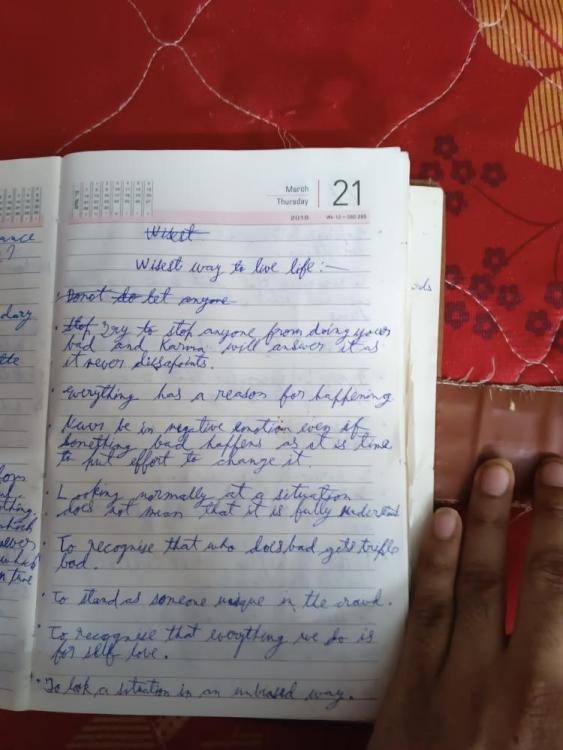 March
Thursday
21
2019 Wk-12 • 080-285
Wisest
Wisest way to live life:-
Donot do let anyone
Stop Try to stop anyone from doing your
bad and Karma will answer it as
it never dissapoints.
Everything has a reason for happening
Never be in negative emotion even if
Something bad happens as it is time
to put effort to change it.
Looking normally at a situation
does not mean that it is fully
To recognise that who does bad gets triple
bad.
To stand as someone unique in the crowd.
To recognise that everything we do is
for self love.
To look a situation in an unbiased way.